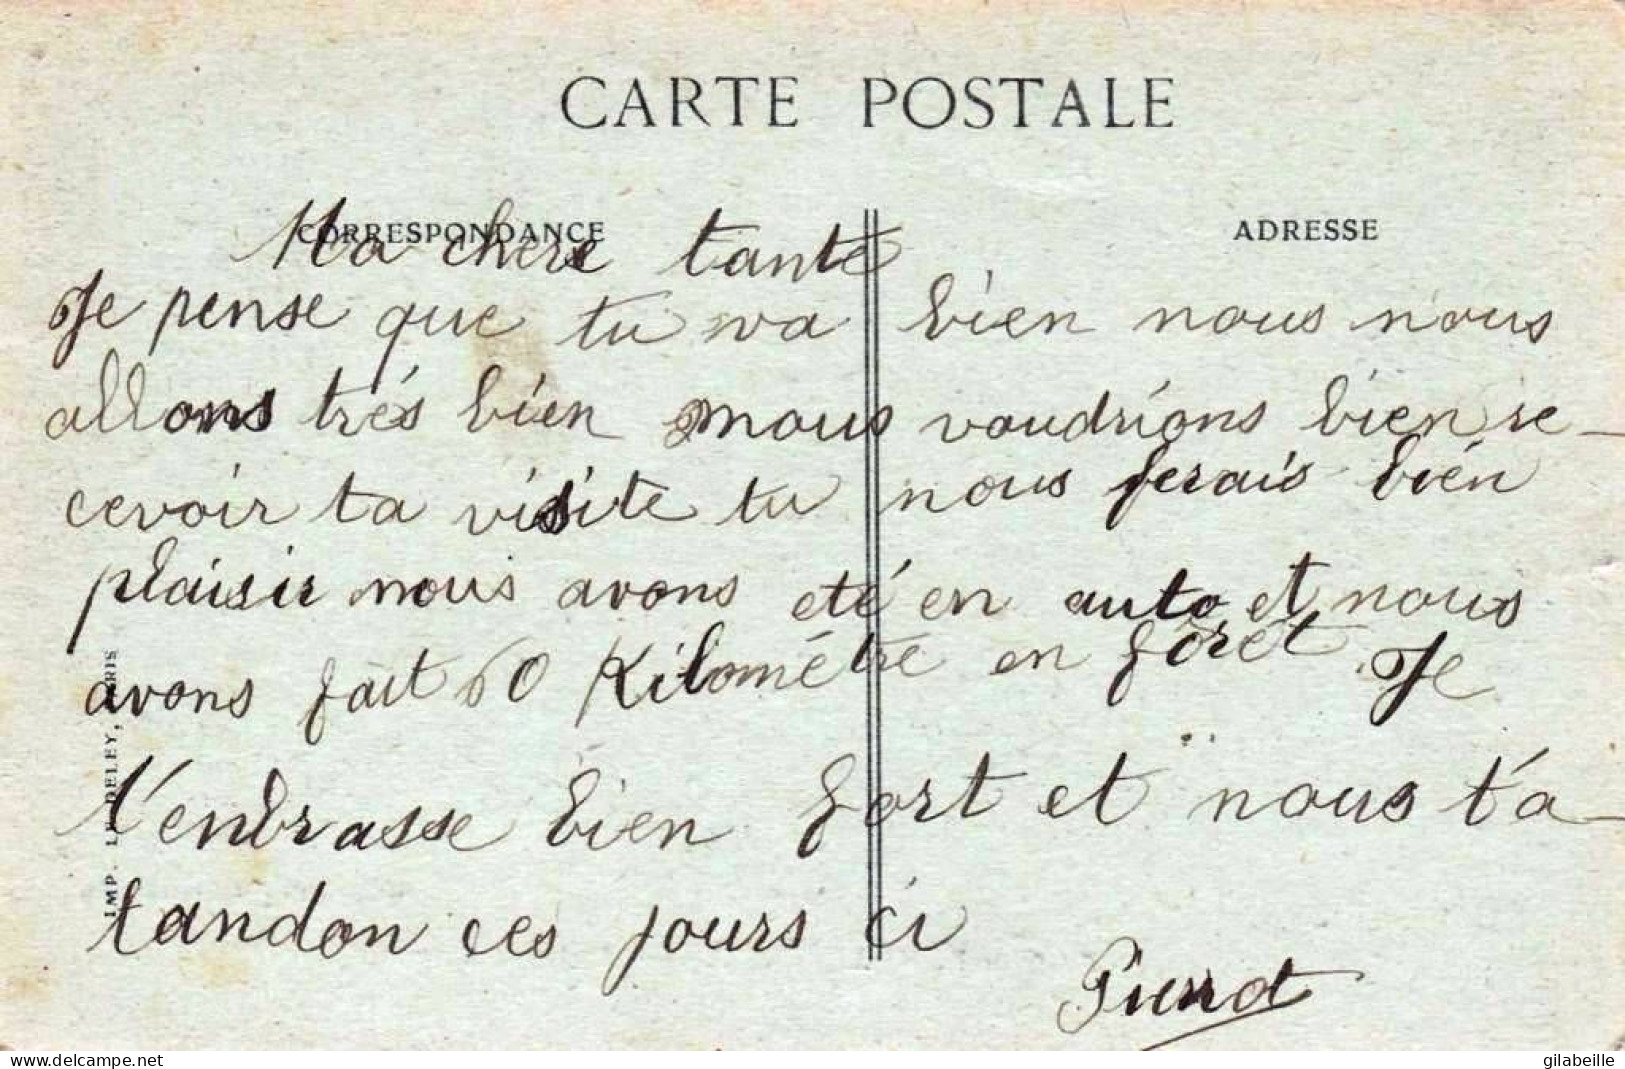 CARTE POSTALE
CORRESPONDANCE
ADRESSE
Ma chere tante
Je pense que tu va bien nous nous
allons trés bien nous voudrions bien re-
cevoir ta visite tu nous ferais bien
plaisir nous avons eté en auto et nous
avons fait 60 Kilométre en forêt. Je
t'enbrasse bien fort et nous t'a-
tandon ces jours ci
Pierrot
IMP. LE DELEY, PARIS
delcampe.net
gilabeille